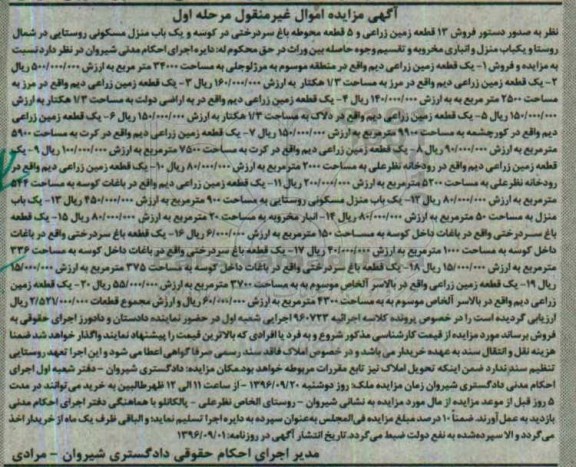 آگهی مزایده اموال غیرمنقول مرحله اول
نظر به صدور دستور فروش ۱۳ قطعه زمین زراعی و ۵ قطعه محوطه باغ سردرختی در کوسه و یک باب منزل مسکونی روستایی در شمال
روستا و یکباب منزل و انباری مخروبه و تقسیم وجوه حاصله بین وراث در حق محکوم له: دایره اجرای احکام مدنی شیروان در نظر دارد نسبت
به مزایده و فروش ۱- یک قطعه زمین زراعی دیم واقع در منطقه موسوم به مرزلوجلی به مساحت ۳۴۰۰۰ متر مربع به ارزش ۵۰۰/۰۰۰/۰۰۰ ریال
۲- یک قطعه زمین زراعی دیم واقع در مرز به مساحت ۱/۳ هکتار به ارزش ۱۶۰/۰۰۰/۰۰۰ ریال ۳- یک قطعه زمین زراعی دیم واقع در مرز به
مساحت ۲۵۰۰ متر مربع به به ارزش ۱۴۰/۰۰۰/۰۰۰ ریال ۴- یک قطعه زمین زراعی دیم واقع در به اراضی دولت به مساحت ۱/۳ هکتار به ارزش
۱۵۰/۰۰۰/۰۰۰ ریال ۵- یک قطعه زمین زراعی دیم واقع در دلاک به مساحت ۱/۳ هکتار به ارزش ۱۵۰/۰۰۰/۰۰۰ ریال ۶- یک قطعه زمین زراعی
دیم واقع در کورچشمه به مساحت ۹۹۰۰ مترمربع به ارزش ۱۵۰/۰۰۰/۰۰۰ ریال ۷- یک قطعه زمین زراعی دیم واقع در کرت به مساحت ۵۹۰۰
مترمربع به ارزش ۹۰/۰۰۰/۰۰۰ ریال ۸- یک قطعه زمین زراعی دیم واقع در کرت به مساحت ۷۵۰۰ مترمربع به ارزش ۱۰۰/۰۰۰/۰۰۰ ریال ۹- یک
قطعه زمین زراعی دیم واقع در رودخانه نظرعلی به مساحت ۲۰۰۰ مترمربع به ارزش ۸۰/۰۰۰/۰۰۰ ریال ۱۰- یک قطعه زمین زراعی دیم واقع در
رودخانه نظرعلی به مساحت ۵۲۰۰ مترمربع به ارزش ۲۰۰/۰۰۰/۰۰۰ ریال ۱۱- یک قطعه زمین زراعی دیم واقع در باغات کوسه به مساحت ۵۴۴
مترمربع به ارزش ۸۰/۰۰۰/۰۰۰ ریال ۱۲- یک باب منزل مسکونی روستایی به مساحت ۹۰۰ مترمربع به ارزش ۴۵۰/۰۰۰/۰۰۰ ریال ۱۳- یک باب
منزل به مساحت ۵۰ مترمربع به ارزش ۸۰/۰۰۰/۰۰۰ ریال ۱۴- انبار مخروبه به مساحت ۲۰ مترمربع به ارزش ۸۰/۰۰۰/۰۰۰ ریال ۱۵- یک قطعه
باغ سردرختی واقع در باغات داخل کوسه به مساحت ۱۵۰ مترمربع به ارزش ۶/۰۰۰/۰۰۰ ریال ۱۶- یک قطعه باغ سردرختی واقع در باغات
داخل کوسه به مساحت ۱۰۰۰ مترمربع به ارزش ۴۰/۰۰۰/۰۰۰ ریال ۱۷- یک قطعه باغ سردرختی واقع در باغات داخل کوسه به مساحت ۳۳۶
مترمربع به ارزش ۱۵/۰۰۰/۰۰۰ ریال ۱۸- یک قطعه باغ سردرختی واقع در باغات داخل کوسه به مساحت ۳۷۵ مترمربع به ارزش ۱۵/۰۰۰/۰۰۰
ریال ۱۹- یک قطعه زمین زراعی واقع در بالاسر آلخاص موسوم به به مساحت ۳۷۰۰ مترمربع به ارزش ۵۵/۰۰۰/۰۰۰ ریال ۲۰- یک قطعه زمین
زراعی دیم واقع در بالاسر آلخاص موسوم به به مساحت ۴۳۰۰ مترمربع به ارزش ۶۰/۰۰۰/۰۰۰ ریال و ارزش مجموع قطعات ۲/۵۲۱/۰۰۰/۰۰۰ ریال
ارزیابی گردیده است را در خصوص پرونده کلاسه اجرائیه ۹۶۰۷۲۳ اجرایی شعبه اول در حضور نماینده دادستان و دادورز اجرای حقوقی به
فروش برساند مورد مزایده از قیمت کارشناسی مذکور شروع و به فرد یا افرادی که بالاترین قیمت را پیشنهاد نمایند واگذار خواهد شد ضمنا
هزینه نقل و انتقال سند به عهده خریدار می باشد و در خصوص املاک فاقد سند رسمی صرفا گواهی اعطا می شود و این اجرا تعهد روستایی
تنظیم سند ندارد ضمن اینکه تحویل املاک نیز تابع مقررات مربوطه خواهد بود. مکان مزایده: دادگستری شیروان - دفتر شعبه اول اجرای
احکام مدنی دادگستری شیروان زمان مزایده ملک: روز دوشنبه ۱۳۹۶/۰۹/۲۰ - از ساعت ۱۱ الی ۱۲ ظهر طالبین به خرید می توانند در مدت
۵ روز قبل از موعد مزایده از مال مورد مزایده به نشانی شیروان - روستای الخاص نظرعلی - پالکانلو با هماهنگی دفتر اجرای احکام مدنی
بازدید به عمل آورند. ضمناً ۱۰ درصد مبلغ مزایده فی المجلس به عنوان سپرده به دایره اجرا تسلیم نماید؛ و الباقی ظرف یک ماه از خریدار اخذ
می گردد و الا سپرده شده به نفع دولت ضبط می گردد. تاریخ انتشار آگهی در روزنامه: ۱۳۹۶/۰۹/۰۱
مدیر اجرای احکام حقوقی دادگستری شیروان - مرادی